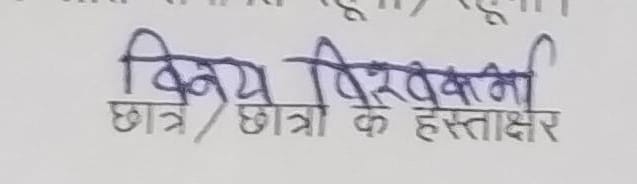 विनय विश्वकर्मा
छात्र / छात्रा के हस्ताक्षर